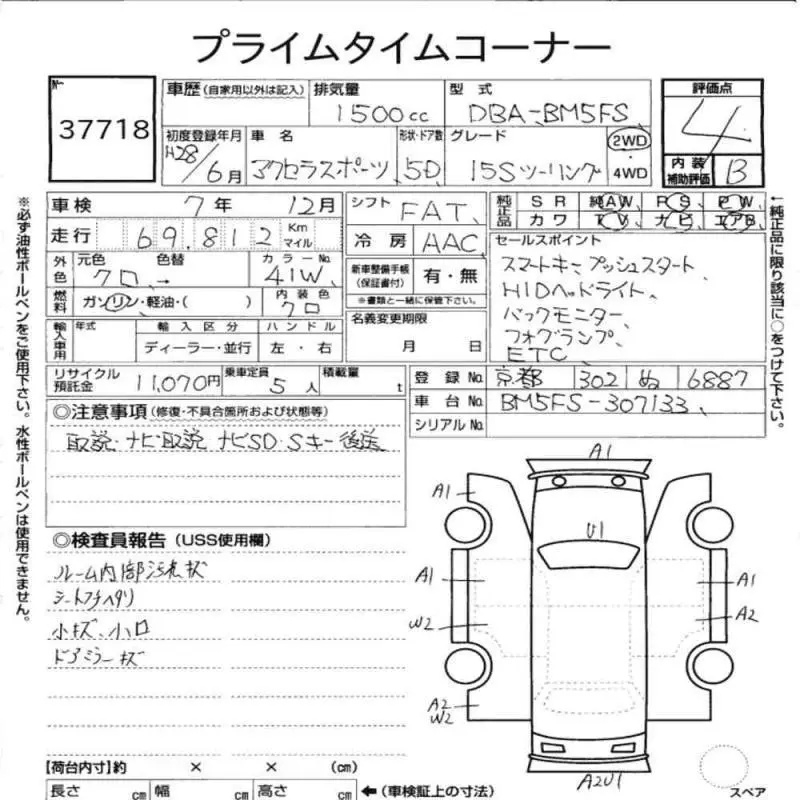 プライムタイムコーナー
No
37718
車歴 (自家用以外は記入)
排気量
1500cc
型式
DBA-BM5FS
評価点
4
初度登録年月
H28/6月
車名
アクセラスポーツ
形状・ドア数
5D
グレード
15Sツーリング
2WD
4WD
内装補助評価
B
車検 7年 12月
走行 69.812 Km マイル
シフト FAT
冷房 AAC
純正品 SR 純AW PS PW
カワ TV ナビ エアB
外色 元色 クロ → 色替 カラーNo 41W
燃料 ガソリン・軽油・( ) 内装色 クロ
新車整備手帳 (保証書付) 有・無
※書類と一緒に保管下さい。
セールスポイント
スマートキー、プッシュスタート
HIDヘッドライト
バックモニター
フォグランプ
ETC
輸入車用 年式 輸入区分 ハンドル
ディーラー・並行 左・右
名義変更期限
月 日
リサイクル預託金 11,070円 乗車定員 5人 積載量 t
登録No. 京都 302 ぬ 6887
車台No. BM5FS-307133
シリアルNo.
◎注意事項 (修復・不具合箇所および状態等)
取説・ナビ取説 ナビSD・Sキー後送
◎検査員報告 (USS使用欄)
ルーム内部汚れ キズ
シートフチヘタリ
小キズ、小凹
ドアミラーキズ
A1
A1
U1
A1
A1
W2
A2
A2
W2
A2U1
スペア
【荷台内寸】約 × × (cm)
長さ cm 幅 cm 高さ cm ←(車検証上の寸法)
※必ず油性ボールペンをご使用下さい。水性ボールペンは使用できません。
←純正品に限り該当に○をつけて下さい。